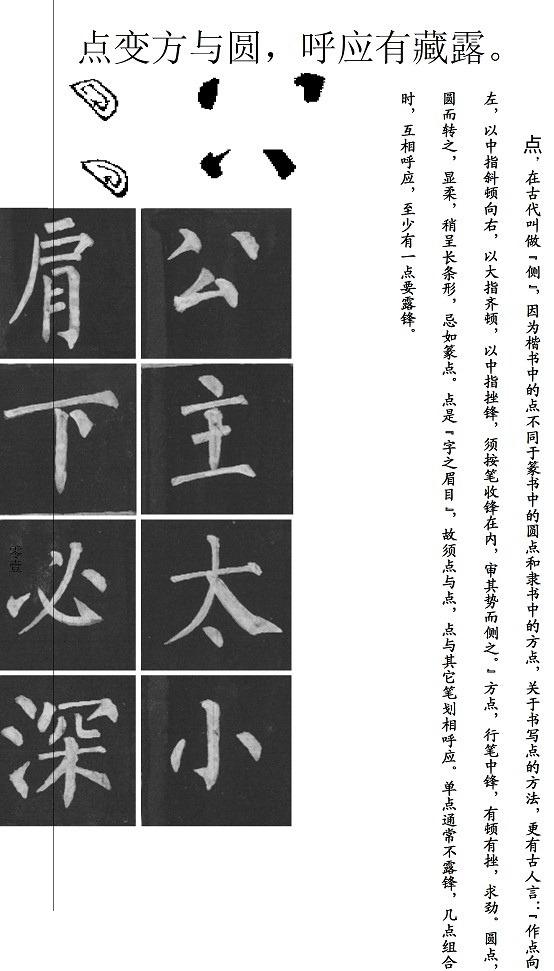 点变方与圆，呼应有藏露。
点，在古代叫做『侧』，因为楷书中的点不同于篆书中的圆点和隶书中的方点，关于书写点的方法，更有古人言：『作点向
左，以中指斜顿向右，以大指齐顿，以中指挫锋，须按笔收锋在内，审其势而侧之。』方点，行笔中锋，有顿有挫，求劲。圆点，
圆而转之，显柔，稍呈长条形，忌如篆点。点是『字之眉目』，故须点与点，点与其它笔划相呼应。单点通常不露锋，几点组合
时，互相呼应，至少有一点要露锋。
公
主
太
小
肩
下
必
深
零壹